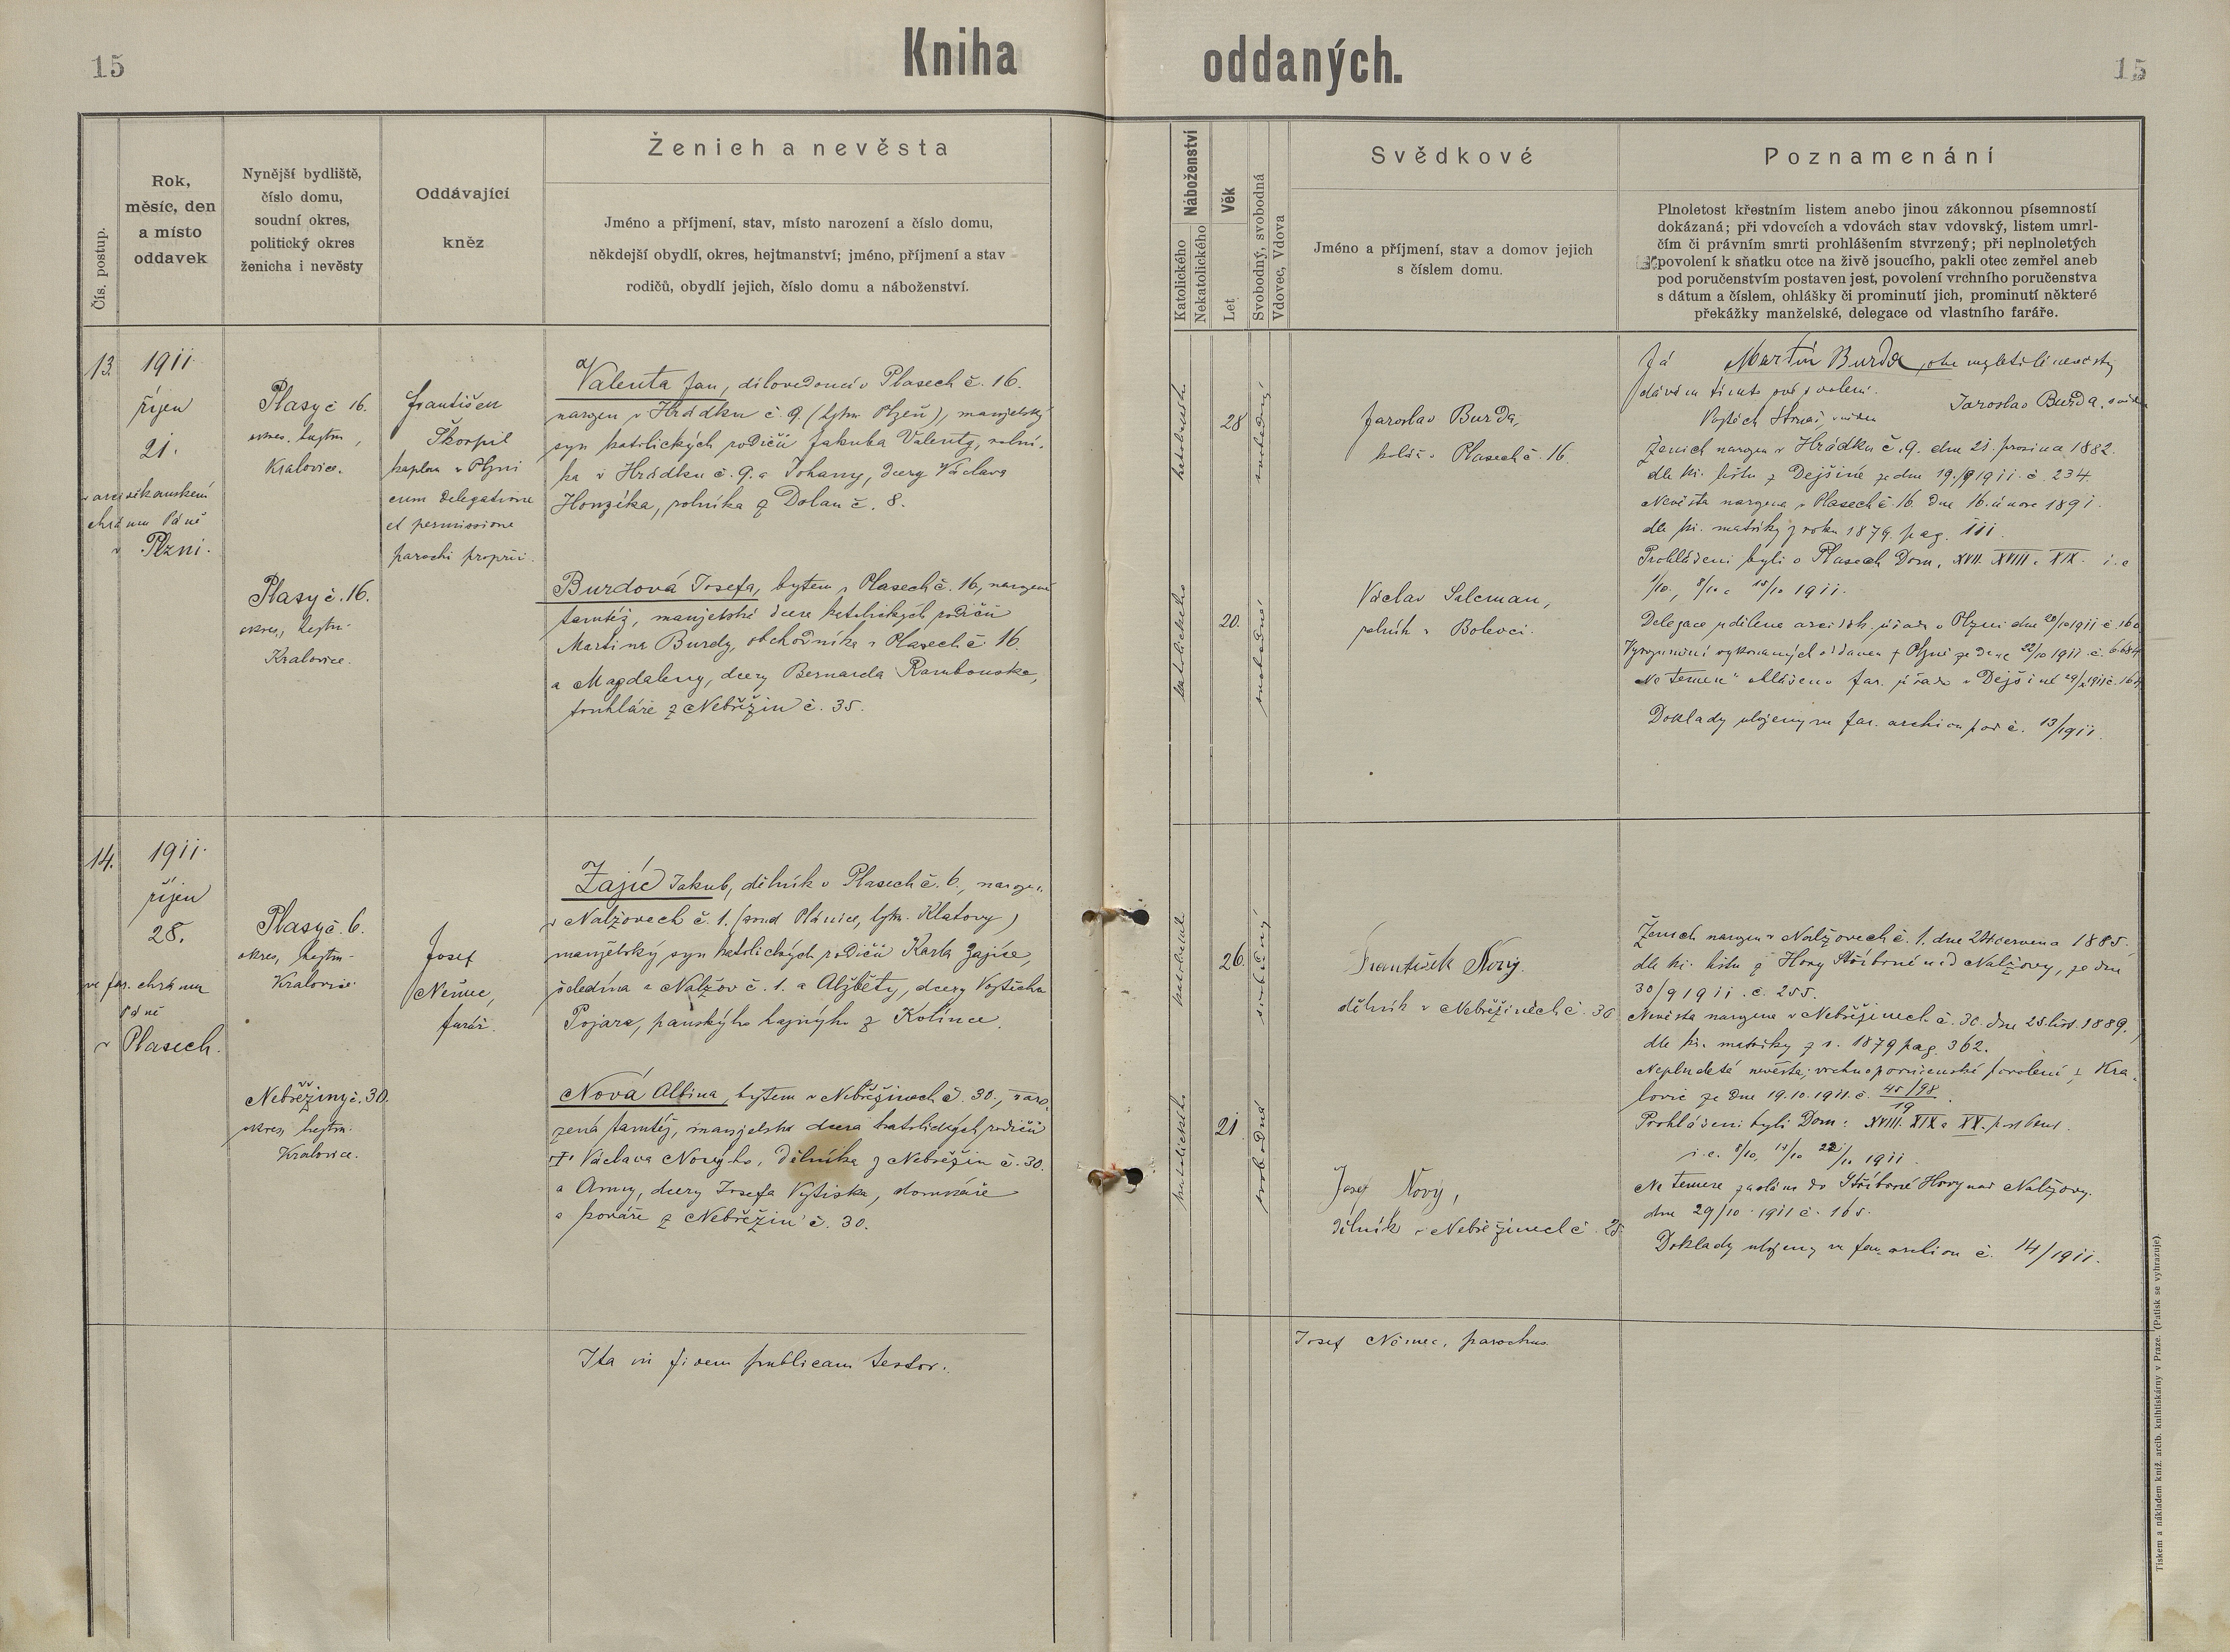 15
Kniha oddaných.
15
Čís. postup.
Rok,
měsíc, den
a místo
oddavek
Nynější bydliště,
číslo domu,
soudní okres,
politický okres
ženicha i nevěsty
Oddávající
kněz
Ženich a nevěsta
Jméno a příjmení, stav, místo narození a číslo domu,
někdejší obydlí, okres, hejtmanství; jméno, příjmení a stav
rodičů, obydlí jejich, číslo domu a náboženství.
Náboženství
Katolického
Nekatolického
Věk
Let
Svobodný, svobodná
Vdovec, Vdova
Svědkové
Jméno a příjmení, stav a domov jejich
s číslem domu.
Poznamenání
Plnoletost křestním listem anebo jinou zákonnou písemností
dokázaná; při vdovcích a vdovách stav vdovský, listem umrl-
čím či právním smrti prohlášením stvrzený; při neplnoletých
povolení k sňatku otce na živě jsoucího, pakli otec zemřel aneb
pod poručenstvím postaven jest, povolení vrchního poručenstva
s dátum a číslem, ohlášky či prominutí jich, prominutí některé
překážky manželské, delegace od vlastního faráře.
13.
1911
říjen
21.
v arciděkanském
chrámu Páně
v Plzni.
Plasy č 16.
okres, hejtm.,
Kralovice.
Plasy č. 16.
okres, hejtm.
Kralovice.
František
Škorpil
kaplan v Plzni
cum delegatione
et permissione
parochi proprii.
Valenta Jan, dílovedoucí v Plasech č. 16.
narozen v Hrádku č. 9. (hejtm. Plzeň), manželský
syn katolických rodičů Jakuba Valenty, rolní-
ka v Hrádku č. 9. a Johany, dcery Václava
Honzíka, rolníka z Dolan č. 8.
Burdová Josefa, bytem v Plasech č. 16, narozena
tamtéž, manželská dcera katolických rodičů
Martina Burdy, obchodníka v Plasech č. 16.
a Magdaleny, dcery Bernarda Rambouska,
truhláře z Nebřežin č. 35.
katolického
28
svobodný
katolického
20.
svobodná
Jaroslav Burda,
kolář v Plasech č. 16.
Václav Salcman,
rolník v Bolevci.
Já Martin Burda, otec nezletilé nevěsty
dávám tímto své svolení.
Jaroslav Burda, svědek
Vojtěch svědek
Ženich narozen v Hrádku č. 9. dne 21. prosince 1882.
dle kř. listu z Dejšiné ze dne 19./9 1911. č. 234.
Nevěsta narozena v Plasech č. 16. dne 16. února 1891.
dle kř. matriky z roku 1879. pag. 111.
Prohlášeni byli v Plasech Dom. XVII. XVIII. a XIX. i. e
1/10, 8/10 a 15/10 1911.
Delegace udělena arciděk. úřadu v Plzni dne 20/10 1911 č. 160
Vyrozumění vykonaných oddavek z Plzně ze dne 22/10 1911 č. 6684
„Ne temere" ohlášeno far. úřadu v Dejšině 29/10 1911 č. 164
Doklady uloženy ve far. archivu pod č. 13/1911.
14.
1911.
říjen
28.
ve far. chrámu
Páně
v Plasech.
Plasy č. 6.
okres, hejtm.
Kralovice
Nebřežiny č. 30.
okres, hejtm.
Kralovice.
Josef
Němec,
farář.
Zajíc Jakub, dělník v Plasech č. 6., narozen
v Nalžovech č. 1. (soud Plánice, hejtm. Klatovy)
manželský syn katolických rodičů Karla Zajíce,
čeledína z Nalžov č. 1. a Alžběty, dcery Vojtěcha
Pojara, panského hajného z Kolince.
Nová Albina, bytem v Nebřežinech č. 30., naro-
zená tamtéž, manželská dcera katolických rodičů
† Václava Nového, dělníka z Nebřežin č. 30.
a Anny, dcery Josefa Vytiska, domkáře
a kováře z Nebřežin č. 30.
katolické
26.
svobodný
katolického
21.
svobodná
František Nový.
dělník v Nebřežinech č. 30
Josef Nový,
dělník v Nebřežinech č. 25.
Ženich narozen v Nalžovech č. 1. dne 24 června 1885.
dle kř. listu z Hory Stříbrné u Nalžovy, ze dne
30/9 1911. č. 255.
Nevěsta narozena v Nebřežinech č. 30. dne 25. list. 1889.
dle kř. matriky z r. 1879 pag. 362.
Neplnoletá nevěsta; vrchnoporučenské povolení z Kra-
lovic ze dne 19. 10. 1911. č. 45/98 19.
Prohlášeni byli Dom: XVIII. XIX a XX. post Pent.
i. e. 8/10, 15/10 22/10 1911.
Ne temere zasláno do Stříbrné Hory nad Nalžovy.
dne 29/10. 1911 č. 165.
Doklady uloženy ve far. archivu č. 14/1911.
Ita in fidem publicam testor.
Josef Němec, parochus.
Tiskem a nákladem kníž. arcib. knihtiskárny v Praze. (Patisk se vyhrazuje).